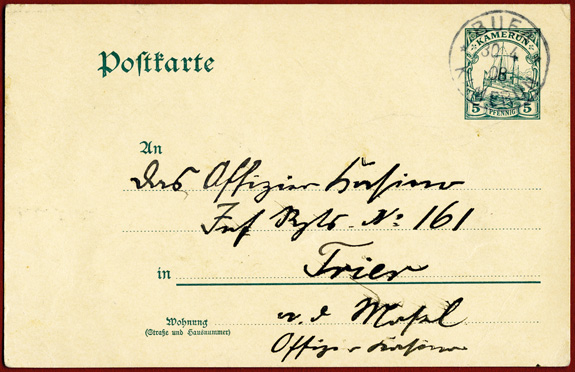 BUEA
KAMERUN
30 4
08
KAMERUN
5 PFENNIG 5
Postkarte
An
das Offizier Kasino
Inf Rgts. No: 161
in Trier
a. d Mosel
Wohnung
(Straße und Hausnummer)
Offizier Kasino